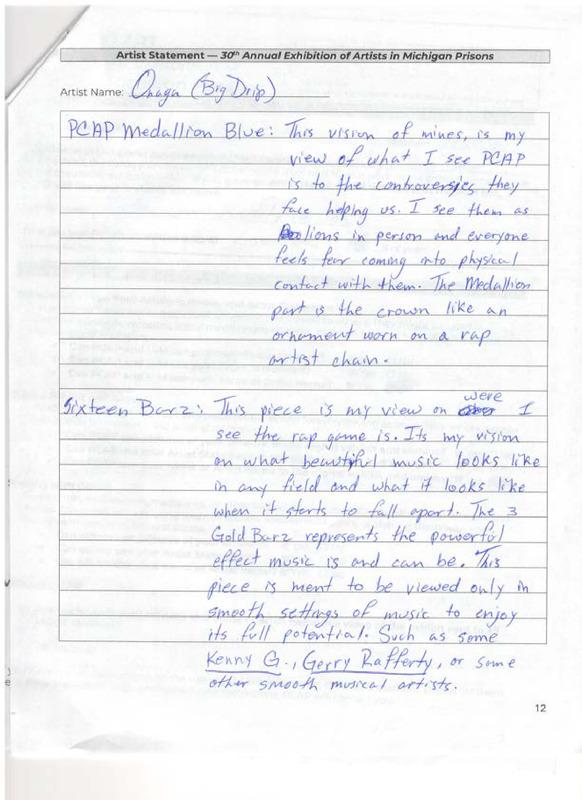 Artist Statement — 30th Annual Exhibition of Artists in Michigan Prisons
Artist Name: Onaga (Big Drip)
PCAP Medallion Blue: This vision of mines, is my
view of what I see PCAP
is to the controversies they
face helping us. I see them as
lions in person and everyone
feels fear coming into physical
contact with them. The Medallion
part is the crown like an
ornament worn on a rap
artist chain.
Sixteen Barz: This piece is my view on were I
see the rap game is. Its my vision
on what beautiful music looks like
in any field and what it looks like
when it starts to fall apart. The 3
Gold Barz represents the powerful
effect music is and can be. This
piece is ment to be viewed only in
smooth settings of music to enjoy
its full potential. Such as some
Kenny G., Gerry Rafferty, or some
other smooth musical artists.
12